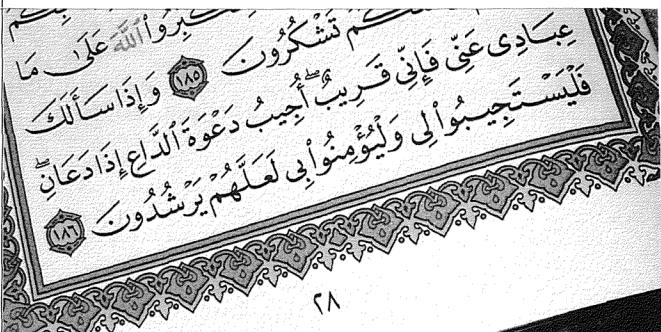 عَلَىٰ مَا
تَشْكُرُونَ ١٨٥ وَإِذَا سَأَلَكَ
عِبَادِى عَنِّى فَإِنِّى قَرِيبٌۖ أُجِيبُ دَعْوَةَ ٱلدَّاعِ إِذَا دَعَانِۖ
فَلْيَسْتَجِيبُوا۟ لِى وَلْيُؤْمِنُوا۟ بِى لَعَلَّهُمْ يَرْشُدُونَ ١٨٦
٢٨